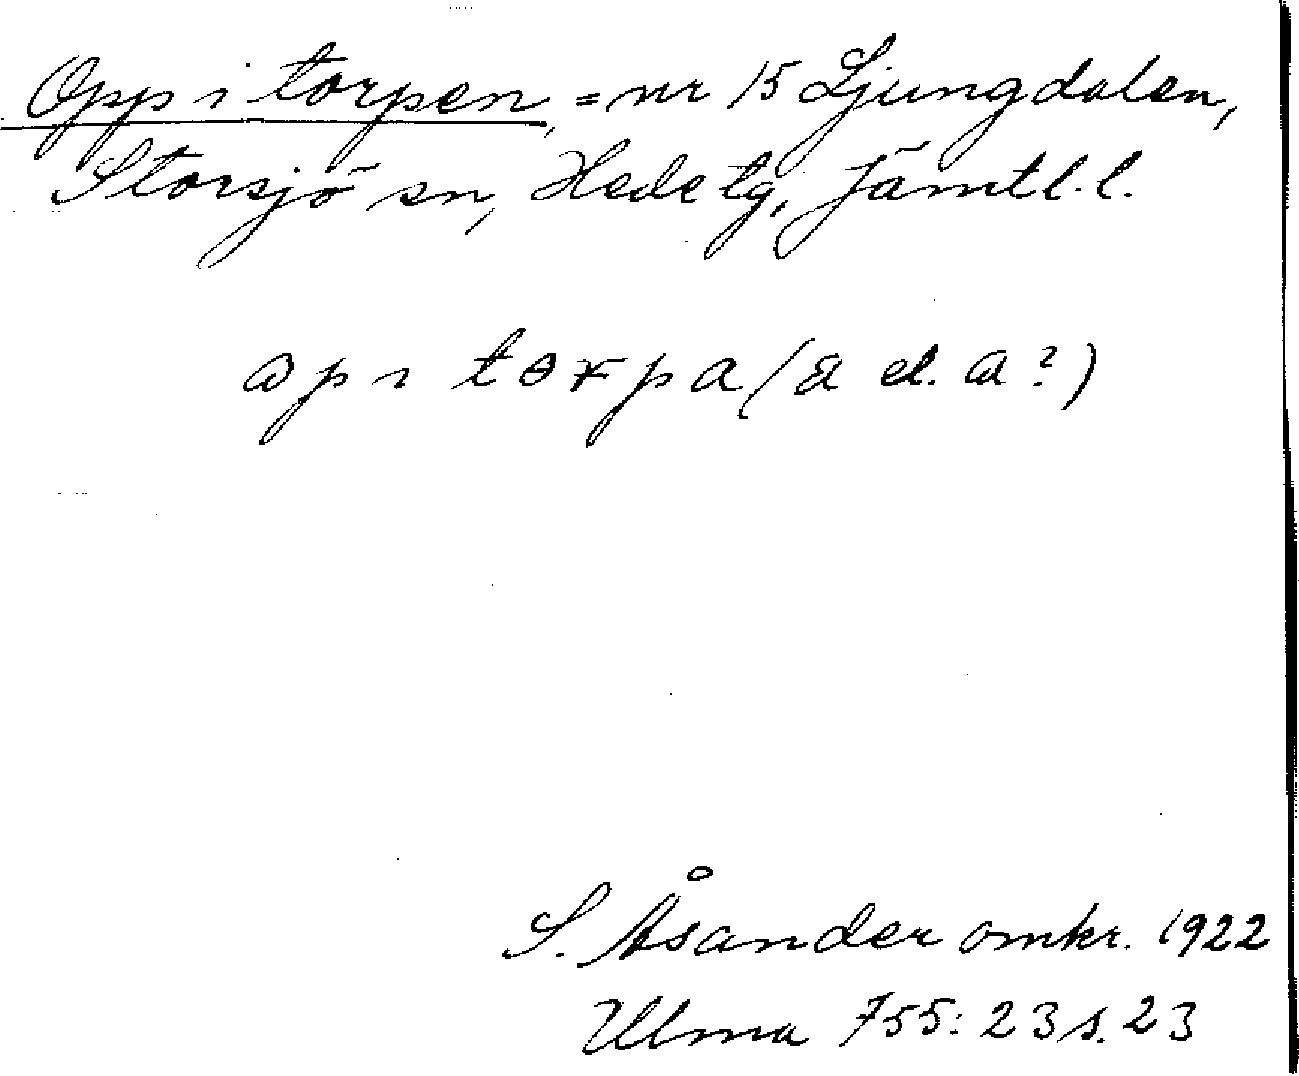 Opp i torpen, = nr 15 Ljungdalen,
Storsjö sn, Hede tg, Jämtl. l.
ɷp ı tɵrpa (a el. ɑ?)
S. Åsander omkr. 1922
Ulma 755: 23 s. 23